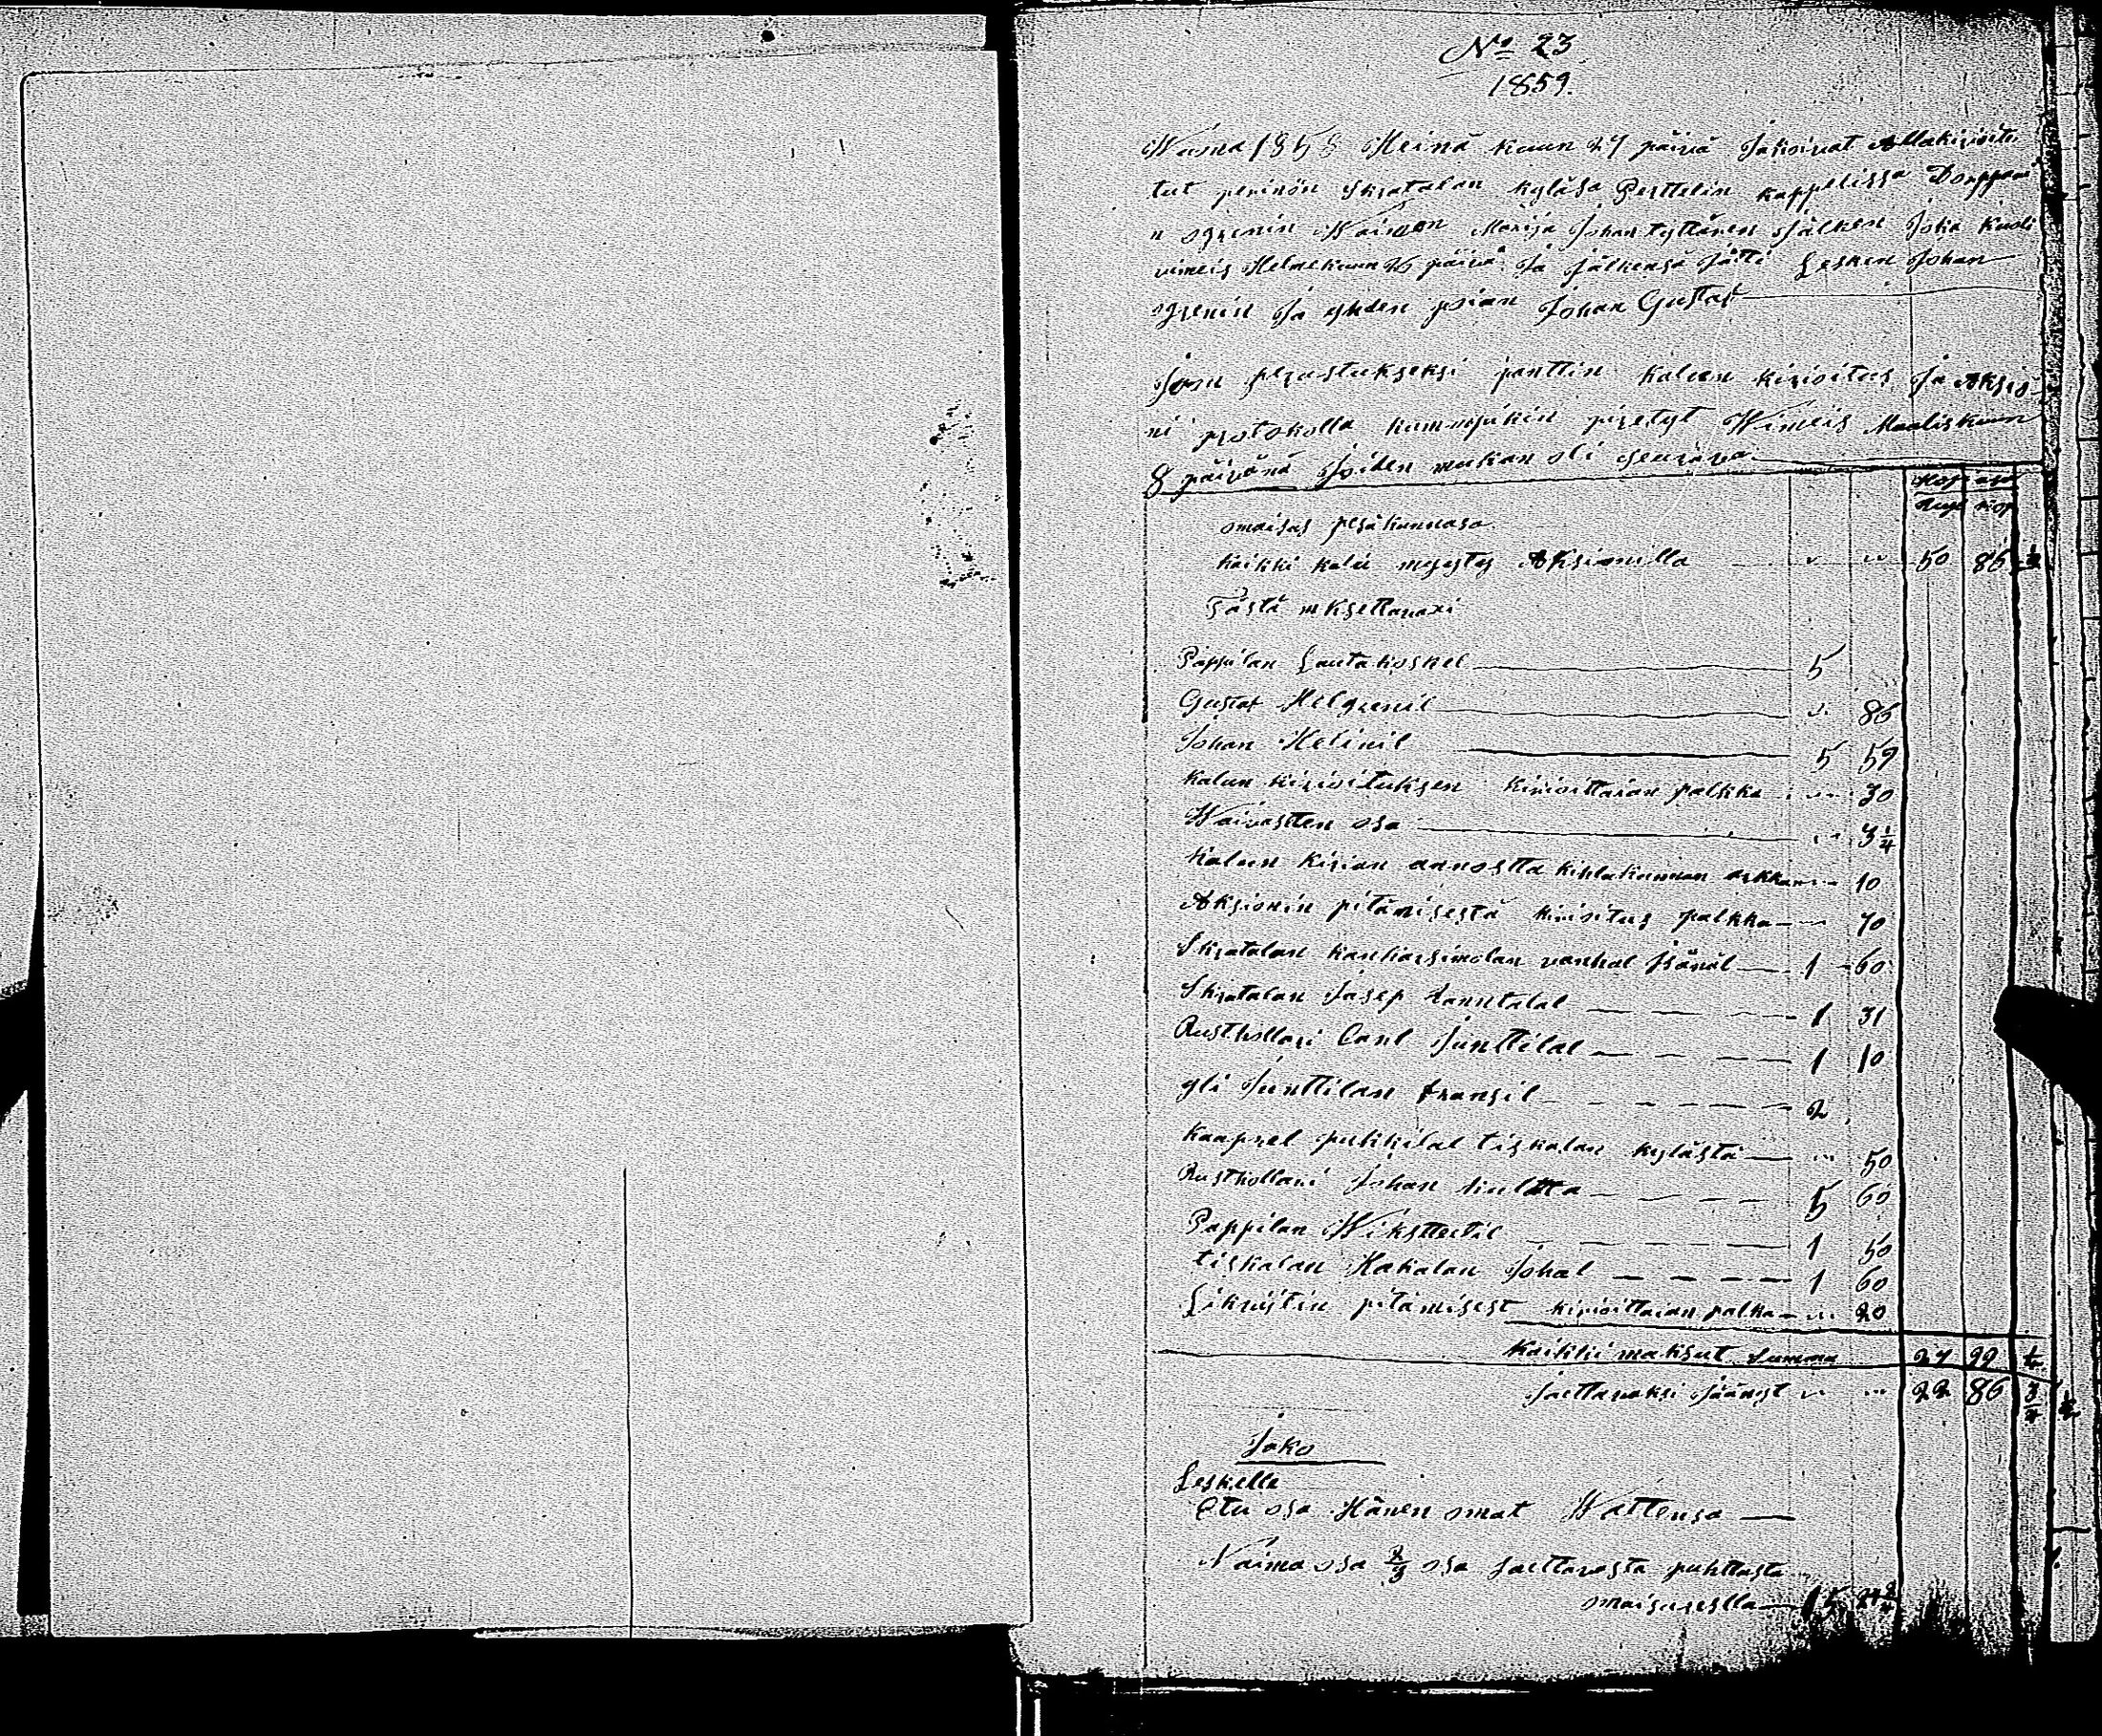 No 23
1859.
Wuona 1858 Heinä kuun 27 päivä Jakoivat Allakirioite
tut perinön Skratalan kyläsa Perttelin kappelissa Torppari
n ogrenin Waimon Marija Johan tyttären Jälken Joka kuoli
vimeis Helmekuun 26 päivä Ja Jälkensä Jätti Lesken Johan
ogrenin Ja yhden poian Johan Gustaf
Jonn perustukseksi panttin kalun kirioitus Ja Aksio
ni protokolla kummpikin piretyt Wimeis Maaliskuun
8 päivänä Joiden mukan oli seurava
Hop asa
Rupl kop
omaisus pesäkunnasa
kaikki kalu myystys Aksionilla " " 50 86 1/4
Tästä mksettavaxi
Pappilan Lautakoskel 5
Gustaf Helgrenil " 86
Johan Helinil 5 59
kalun kirioituksen kirioittaian palkka " 30
Waivastten osa " 3 1/4
kalun kirian annostta kihlakunnan arkkun " 10
Aksionin pitämisestä kirioitus palkka " 70
Skratalan kankarsimolan vanhal Isänäl 1 60
Skratalan Jasep Anntalal 1 31
Rusthollari Carl Junttilal 1 10
yli Junttilan fransil 2
kaaprel pukkilal tiskalan kylästä " 50
Rusthollari Johan 5 60
Pappilan 1 50
tiskalan Hakalan Johal 1 60
pitämisest kirioittaian palka " 20
kaikki maksut Summa 27 99 1/4
Jaettavaksi Jäänyt " " 22 86 3/4
Jako
Leskelle
Etu osa Hänen omat Wattensa
Naima osa 2/3 osa Jaettavasta puhttasta
omaisuvesta 15 24 2/4